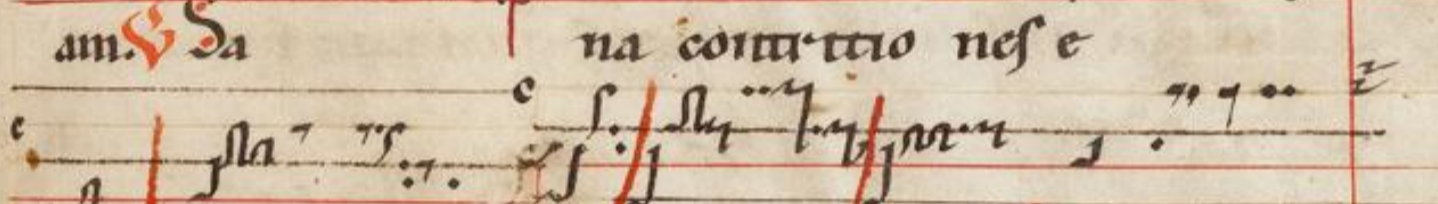 am. V Sa na contritio neſ e